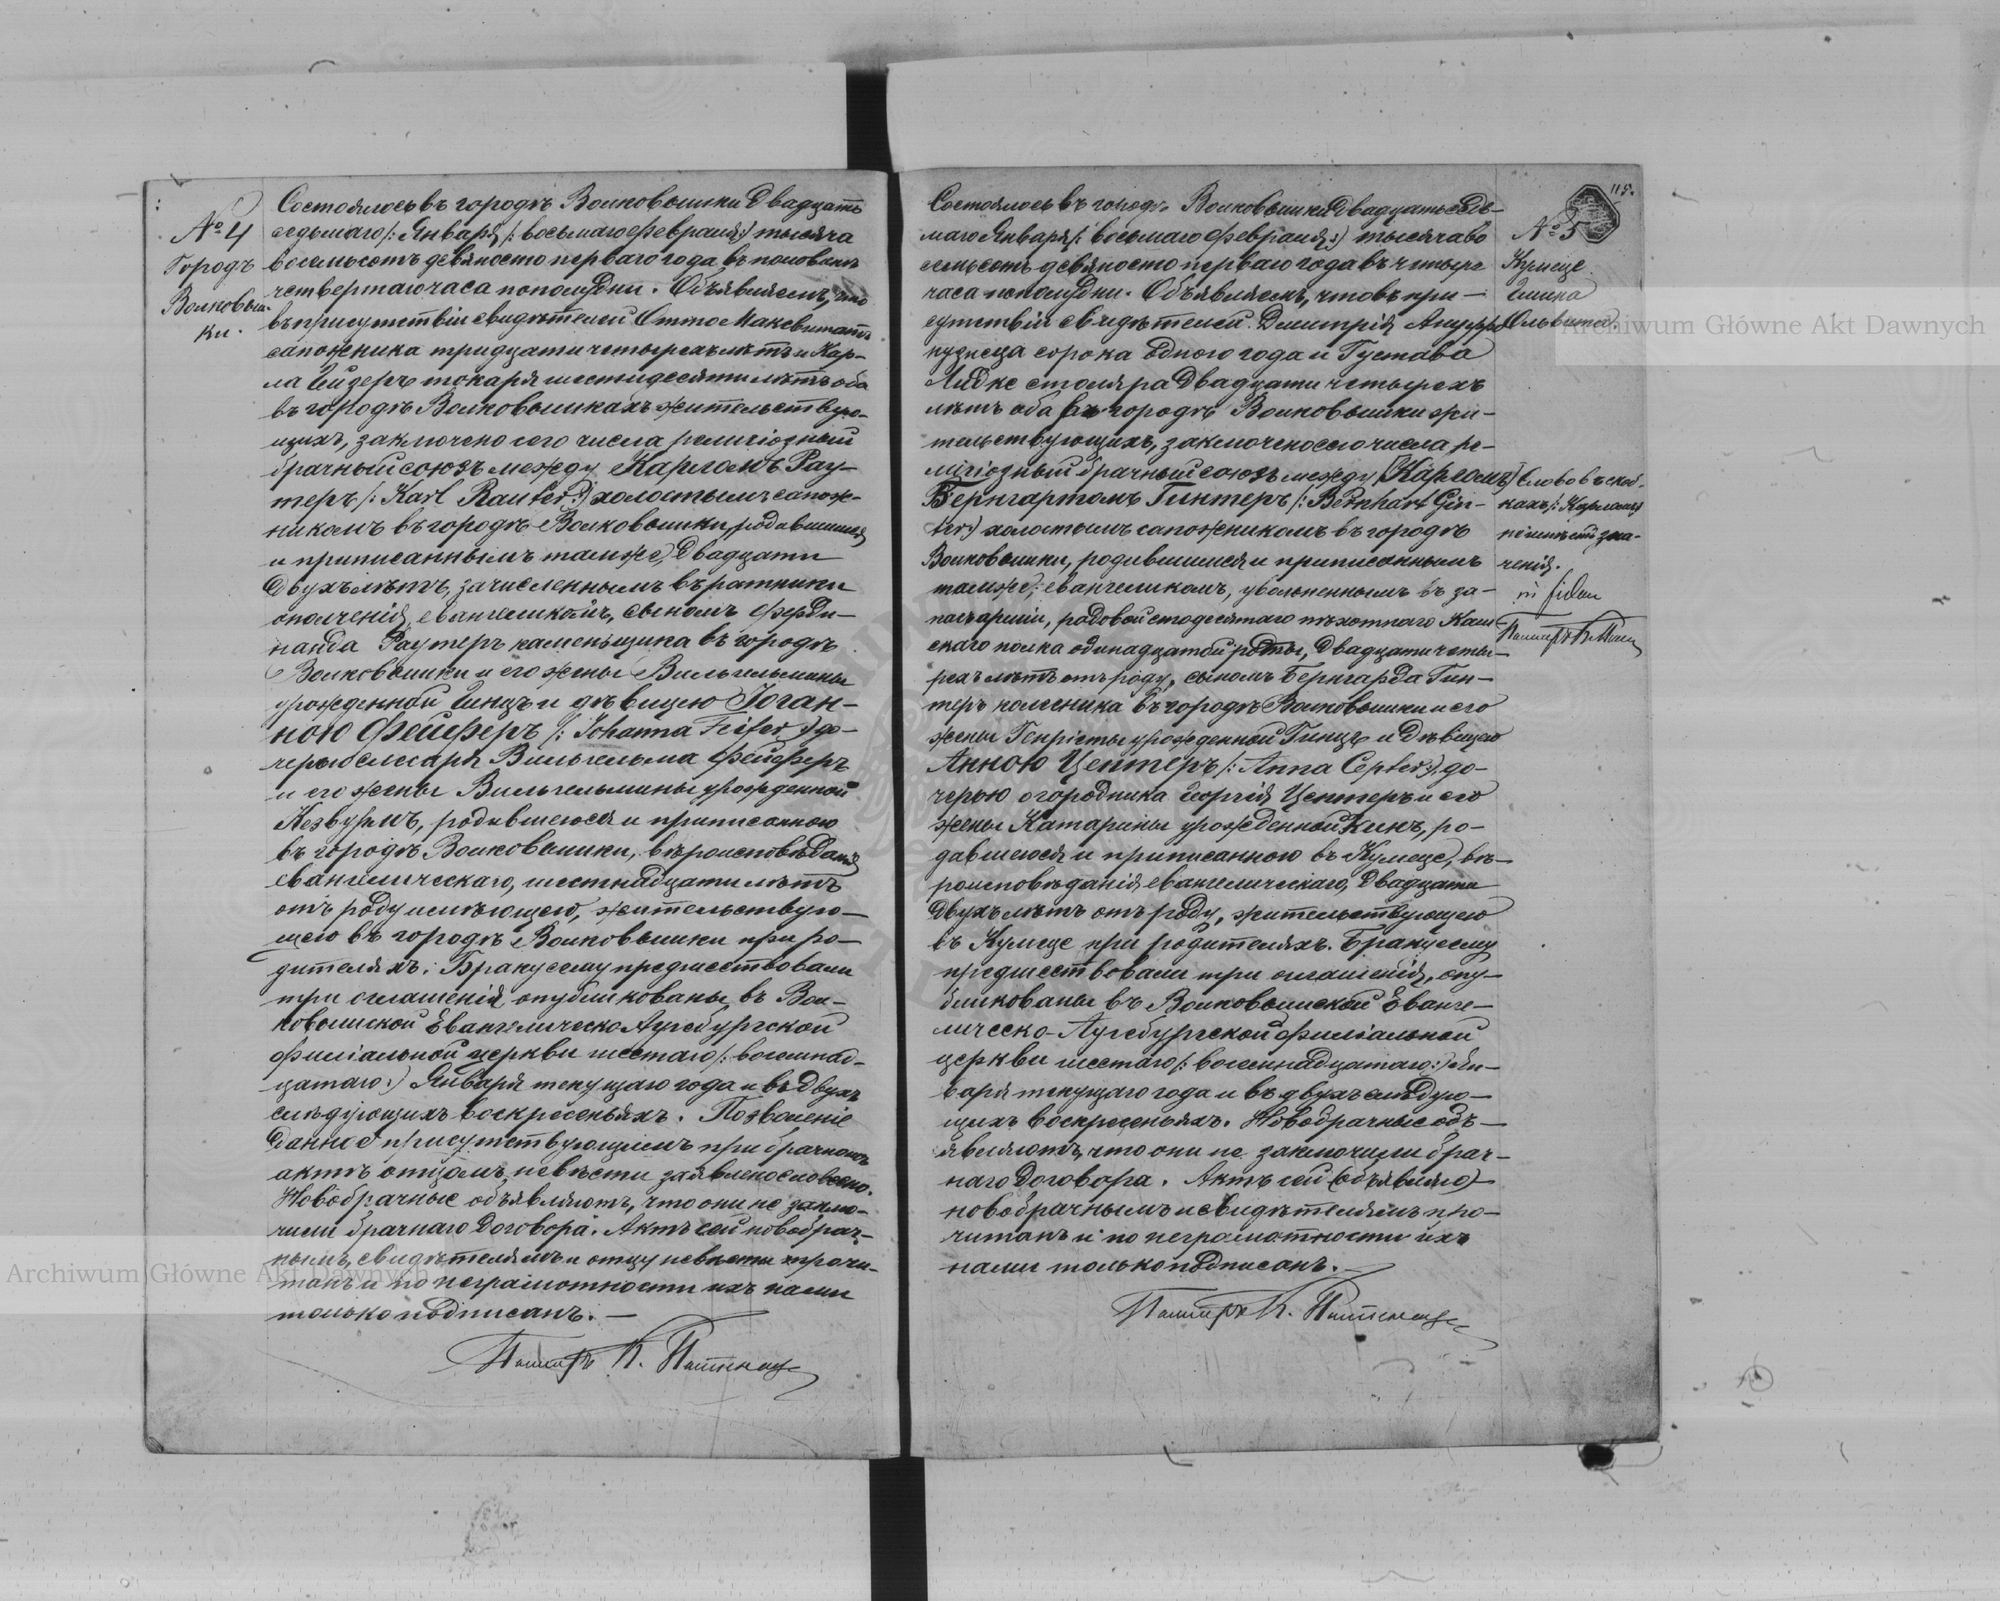 № 4
Городъ
Волковыш-
ки.
Состоялось въ городѣ Волковышки двадцать
седьмаго /: Января /: восьмаго Февраля :/ тысяча
восемьсотъ девяносто перваго года въ половинѣ
четвертаго часа пополудни. Объявляемъ, что
въ присутствіи свидѣтелей Отто
сапожника тридцати четырехъ лѣтъ и Кар-
ла токаря шестидесяти лѣтъ оба
въ городѣ Волковышкахъ жительствую-
щихъ, заключено сего числа религіозный
брачный союзъ между Карломъ Рау-
теръ /: Karl Rauter :/ холостымъ сапож-
никомъ въ городѣ Волковышки, родившимся
и приписаннымъ тамже, двадцати
двухъ лѣтъ, зачисленнымъ въ ратники
ополченія, евангеликомъ, сыномъ Ферди-
нанда Раутеръ каменьщика въ городѣ
Волковышки и его жены Вильгельмины
урожденной и дѣвицею Іоган-
ною Фейферъ /: Johanna Feifer :/ до-
черью слесаря Вильгельма Фейферъ
и его жены Вильгельмины урожденной
родившеюся и приписанною
въ городѣ Волковышки, вѣроисповѣданія
евангелическаго, шестнадцати лѣтъ
отъ роду имѣющею, жительствую-
щею въ городѣ Волковышки при ро-
дителяхъ. Браку сему предшествовали
три оглашенія, опубликованы въ Вол-
ковышской Евангелическо Аугсбургской
филіальной церкви шестаго /: восемнад-
цатаго :/ Января текущаго года и въ двухъ
слѣдующихъ воскресеньяхъ. Позволеніе
данное присутствующимъ при брачномъ
актѣ отцомъ невѣсты заявлено словесно.
Новобрачные объявляютъ, что они не заклю-
чили брачнаго договора. Актъ сей новобрач-
нымъ, свидѣтелямъ и отцу невѣсты прочи-
танъ и по неграмотности ихъ нами
только подписанъ. —
Пасторъ К.
115.
№ 5
Кумеце
гмина
Ольвита.
Состоялось въ городѣ Волковышки двадцать седь-
маго Января /: восьмаго Февраля :/ тысяча во
семьсотъ девяносто перваго года въ четыре
часа пополудни. Объявляемъ, что въ при-
сутствіи свидѣтелей Дмитрія
кузнеца сорока одного года и Густава
Лидке столяра двадцати четырехъ
лѣтъ оба въ городѣ Волковышки жи-
тельствующихъ, заключено сего числа ре-
лигіозный брачный союзъ между (Карломъ)
Бернгартомъ Гинтеръ /: Bernhart Gin-
ter :/ холостымъ сапожникомъ въ городѣ
Волковышки, родившимся и приписаннымъ
тамже, евангеликомъ, уволеннымъ въ за-
пасъ арміи, рядовой стодесятаго пѣхотнаго Кам-
скаго полка одинадцатой роты, двадцати четы-
рехъ лѣтъ отъ роду, сыномъ Бернгарда Гин-
теръ колесника въ городѣ Волковышки и его
жены Генріеты урожденной Гинцъ и дѣвицею
Анною Цептеръ /: Anna Cepter :/, до-
черью огородника Георгія Цептеръ и его
жены Катарины урожденной Кинъ, ро-
дившеюся и приписанною въ Кумеце, вѣ-
роисповѣданія евангелическаго, двадцати
двухъ лѣтъ отъ роду, жительствующею
въ Кумеце при родителяхъ. Браку сему
предшествовали три оглашенія, опу-
бликованы въ Волковышской Еванге-
лическо-Аугсбургской филіальной
церкви шестаго /: восемнадцатаго :/ Ян-
варя текущаго года и въ двухъ слѣдую-
щихъ воскресеньяхъ. Новобрачные объ-
являютъ, что они не заключили брач-
наго договора. Актъ сей (объявляю)
новобрачнымъ и свидѣтелямъ про-
читанъ и по неграмотности ихъ
нами только подписанъ. —
Пасторъ К.
Слово въ скоб-
кахъ /: Карломъ
не имѣетъ зна-
ченія.
in fidem
Пасторъ К.
Archiwum Główne Akt Dawnych
Archiwum Główne Akt Dawnych